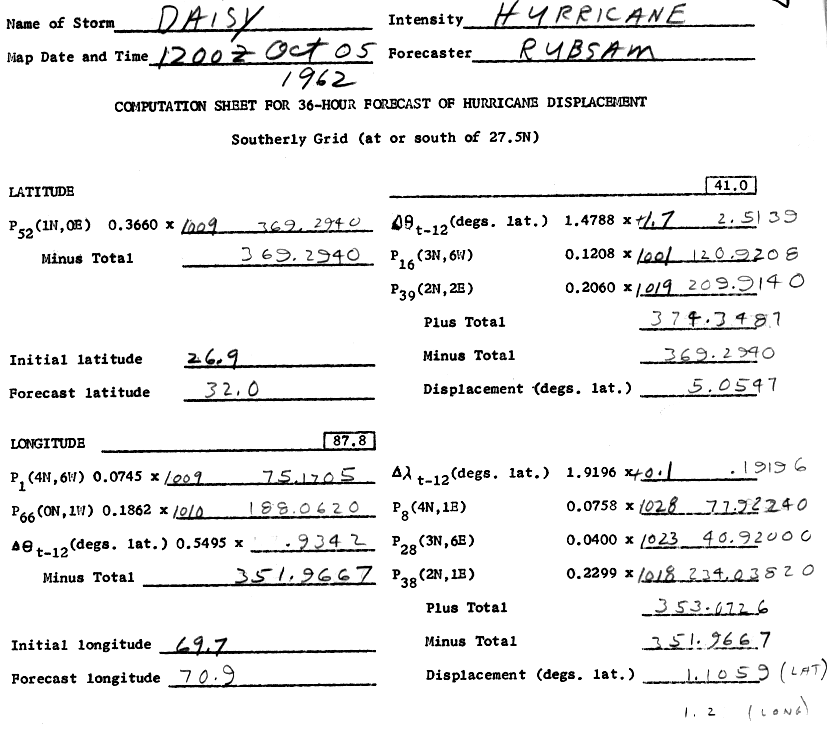 Name of Storm DAISY Intensity HURRICANE
Map Date and Time 1200Z Oct 05 Forecaster RUBSAM
1962
COMPUTATION SHEET FOR 36-HOUR FORECAST OF HURRICANE DISPLACEMENT
Southerly Grid (at or south of 27.5N)
LATITUDE 41.0
P52(1N,0E) 0.3660 x 1009 369.2940 Δθt-12(degs. lat.) 1.4788 x +1.7 2.5139
Minus Total 369.2940 P16(3N,6W) 0.1208 x 1001 120.9208
P39(2N,2E) 0.2060 x 1019 209.9140
Plus Total 374.3487
Initial latitude 26.9 Minus Total 369.2940
Forecast latitude 32.0 Displacement (degs. lat.) 5.0547
LONGITUDE 87.8
P1(4N,6W) 0.0745 x 1009 75.1705 Δλt-12(degs. lat.) 1.9196 x +0.1 .19196
P66(0N,1W) 0.1862 x 1010 188.0620 P8(4N,1E) 0.0758 x 1028 77.92240
Δθt-12(degs. lat.) 0.5495 x .9342 P28(3N,6E) 0.0400 x 1023 40.92000
Minus Total 351.9667 P38(2N,1E) 0.2299 x 1018 234.03820
Plus Total 353.0726
Initial longitude 69.7 Minus Total 351.9667
Forecast longitude 70.9 Displacement (degs. lat.) 1.1059 (LAT)
1.2 (LONG)